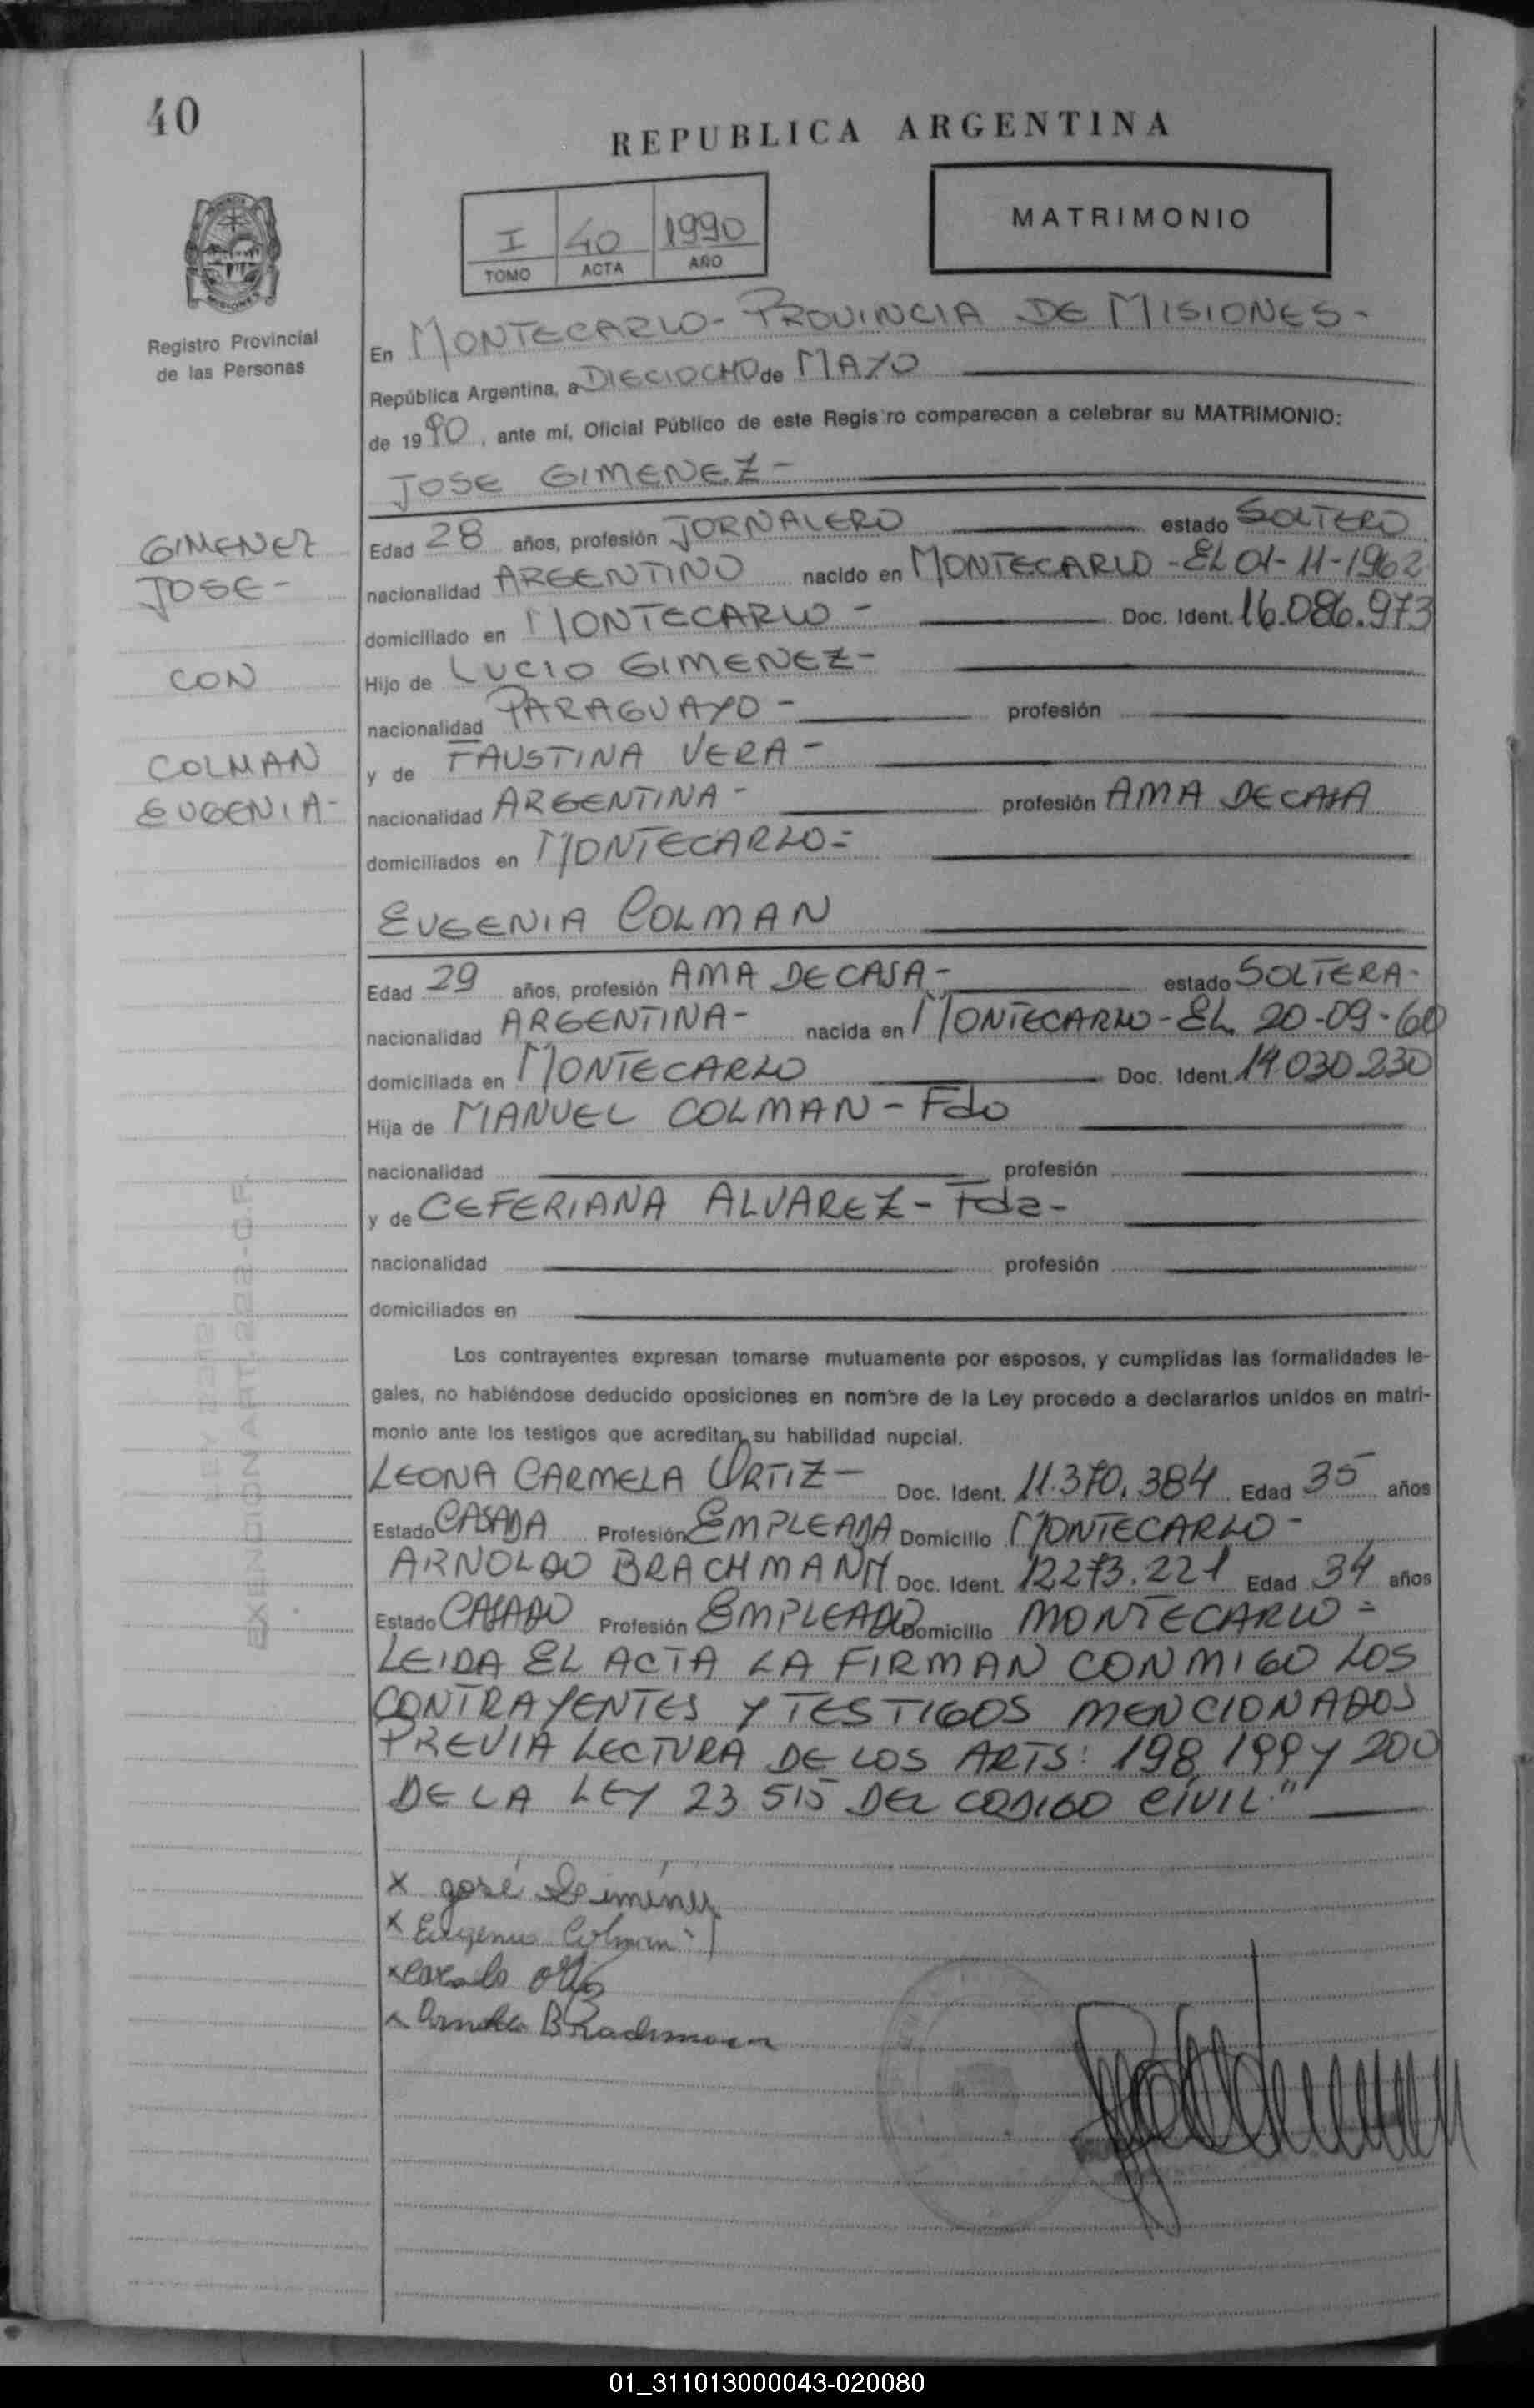 40
REPUBLICA ARGENTINA
I 40 1990
TOMO ACTA AÑO
MATRIMONIO
MISIONES
Registro Provincial
de las Personas
En MONTECARLO - PROVINCIA DE MISIONES -
República Argentina, a DIECIOCHO de MAYO
de 1990, ante mí, Oficial Público de este Registro comparecen a celebrar su MATRIMONIO:
JOSE GIMENEZ -
GIMENEZ
JOSE -
CON
COLMAN
EUGENIA -
Edad 28 años, profesión JORNALERO estado SOLTERO
nacionalidad ARGENTINO nacido en MONTECARLO - EL 01-11-1962
domiciliado en MONTECARLO - Doc. Ident. 16.086.973
Hijo de LUCIO GIMENEZ -
nacionalidad PARAGUAYO - profesión
y de FAUSTINA VERA -
nacionalidad ARGENTINA - profesión AMA DE CASA
domiciliados en MONTECARLO =
EUGENIA COLMAN
Edad 29 años, profesión AMA DE CASA - estado SOLTERA -
nacionalidad ARGENTINA - nacida en MONTECARLO - EL 20-09-60
domiciliada en MONTECARLO Doc. Ident. 14.030.230
Hija de MANUEL COLMAN - Fdo
nacionalidad profesión
y de CEFERIANA ALVAREZ - Fda -
nacionalidad profesión
domiciliados en
Los contrayentes expresan tomarse mutuamente por esposos, y cumplidas las formalidades le-
gales, no habiéndose deducido oposiciones en nombre de la Ley procedo a declararlos unidos en matri-
monio ante los testigos que acreditan su habilidad nupcial.
LEONA CARMELA ORTIZ - Doc. Ident. 11.370.384 Edad 35 años
Estado CASADA Profesión EMPLEADA Domicilio MONTECARLO -
ARNOLDO BRACHMANN Doc. Ident. 12273.221 Edad 34 años
Estado CASADO Profesión EMPLEADO Domicilio MONTECARLO =
LEIDA EL ACTA LA FIRMAN CONMIGO LOS
CONTRAYENTES Y TESTIGOS MENCIONADOS
PREVIA LECTURA DE LOS ARTS: 198, 199 y 200
DE LA LEY 23.515 DEL CODIGO CIVIL."
EXENCION ART.
x José Gimenez
x Eugenia Colman
x Ortiz
x Brachmann
01_311013000043-020080